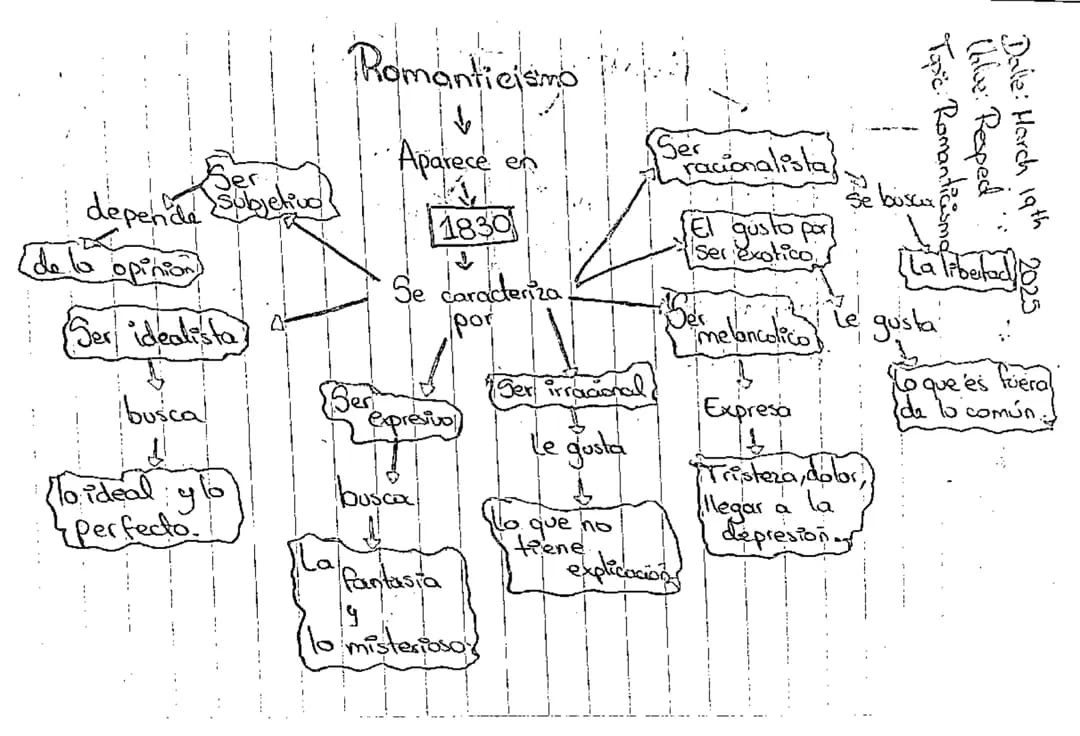 Date: March 19th 2025
Value: Respect
Topic: Romanticismo
Romanticismo
Aparece en
1830
Se caracteriza
por
Ser
subjetivo
depende
de la opinión
Ser idealista
busca
lo ideal y lo
perfecto.
Ser
expresivo
busca
La
fantasía
y
lo misterioso
Ser irracional
Le gusta
Lo que no
tiene
explicación
Ser
melancolico
Expresa
Tristeza, dolor,
llegar a la
depresión.
El gusto por
ser exotico
Le gusta
Lo que es fuera
de lo común.
Ser
racionalista
Se busca
La libertad